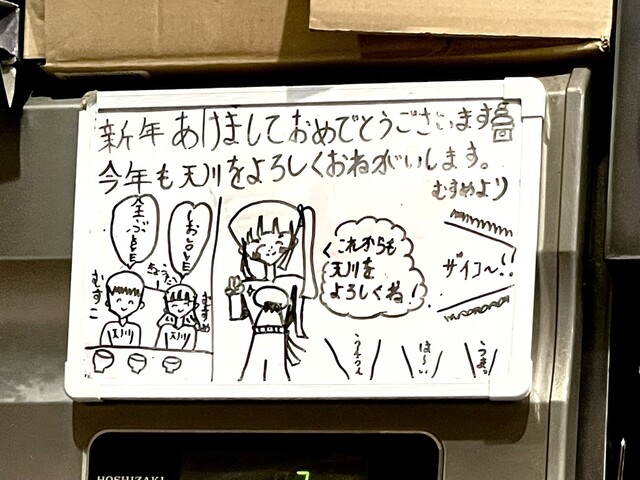 新年あけましておめでとうございます
今年も天川をよろしくおねがいします。
むすめより
全ぶLOVE
しおLOVE
むすこ
むすめ
天川
天川
これからも
天川を
よろしくね!
ザイコ〜!!
うんうん
は〜い
うまっ
HOSHIZAKI